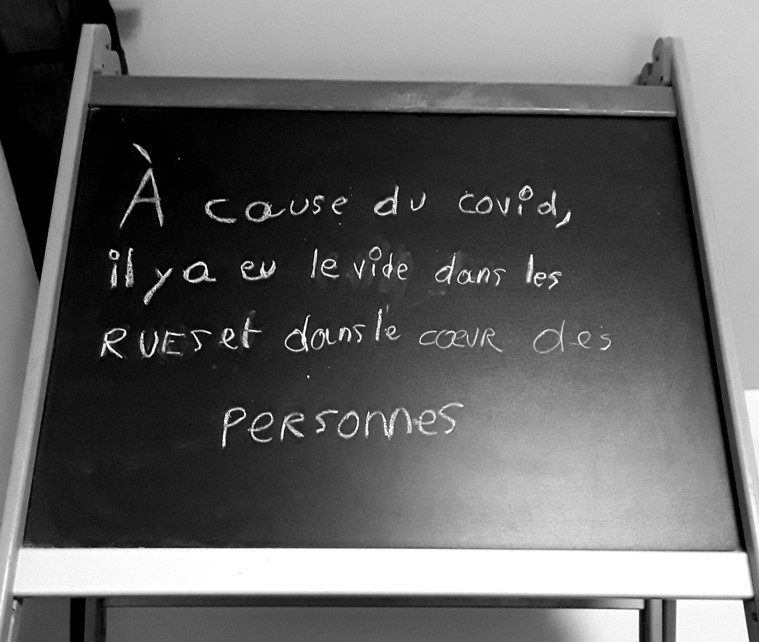 À cause du covid,
il y a eu le vide dans les
RUES et dans le cœUR des
PeRsonnes